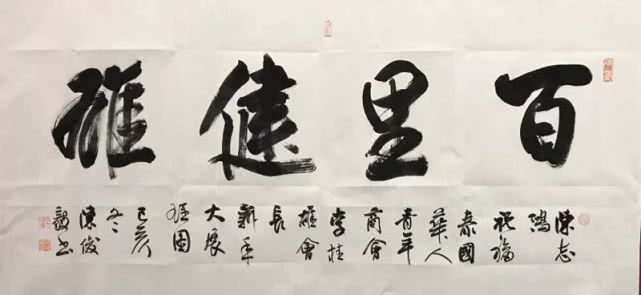 百里健雄
陳志
鴻
祝福
泰國
華人
青年
商會
李桂
雄會
長
新年
大展
雄圖
己亥
冬
陳俊
毅書